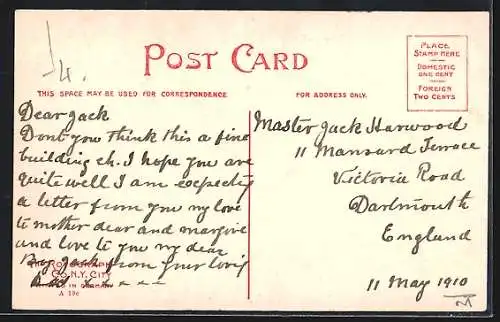 14.
POST CARD
THIS SPACE MAY BE USED FOR CORRESPONDENCE
FOR ADDRESS ONLY.
PLACE
STAMP HERE
DOMESTIC
ONE CENT
FOREIGN
TWO CENTS
Dear Jack
Dont you think this a fine
building eh. I hope you are
quite well I am expecting
a letter from you my love
to mother dear and margire
and love to you my dear
Boy Jack from your lovig
Dad x x - - -
CO. N.Y. CITY
IN GERMANY
A 19c
Master Jack Harwood
11 Mansard Terrace
Victoria Road
Dartmouth
England
11 May 1910